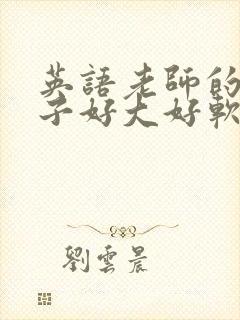 英語老師的
子好大好軟
劉雲晨